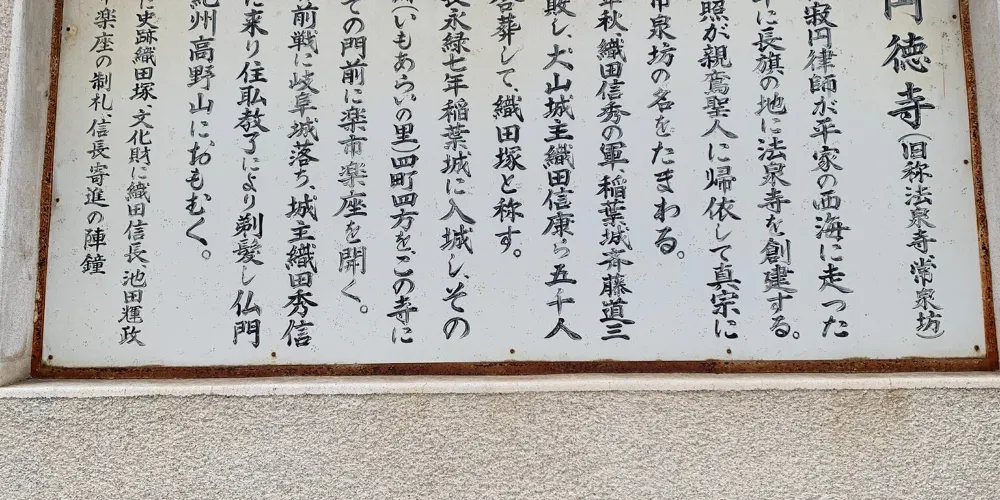 円徳寺(旧称法泉寺常泉坊)
寂円律師が平家の西海に走った
年に長旗の地に法泉寺を創建する。
照が親鸞聖人に帰依して真宗に
常泉坊の名をたまわる。
年秋、織田信秀の軍、稲葉城斉藤道三
敗し、犬山城主織田信康ら五千人
合葬して、織田塚と称す。
永緑七年稲葉城に入城し、その
(いもあらいの里)四町四方をこの寺に
ての門前に楽市楽座を開く。
前戦に岐阜城落ち、城主織田秀信
に来り住職教了により剃髪し仏門
紀州高野山におもむく。
に史跡織田塚、文化財に織田信長池田輝政
楽座の制札、信長寄進の陣鐘